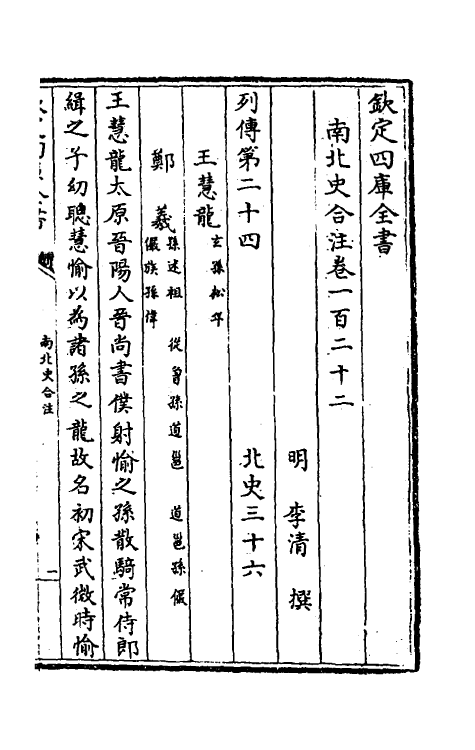 欽定四庫全書
南北史合注卷一百二十二
明 李清 撰
列傳第二十四 北史三十六
王慧龍 玄孫松年
鄭羲 孫述祖 從曾孫道邕 道邕孫儼
儼族孫偉
王慧龍太原晉陽人晉尚書僕射愉之孫散騎常侍郎
緝之子幼聰慧愉以為諸孫之龍故名初宋武微時愉
南北史合注
一